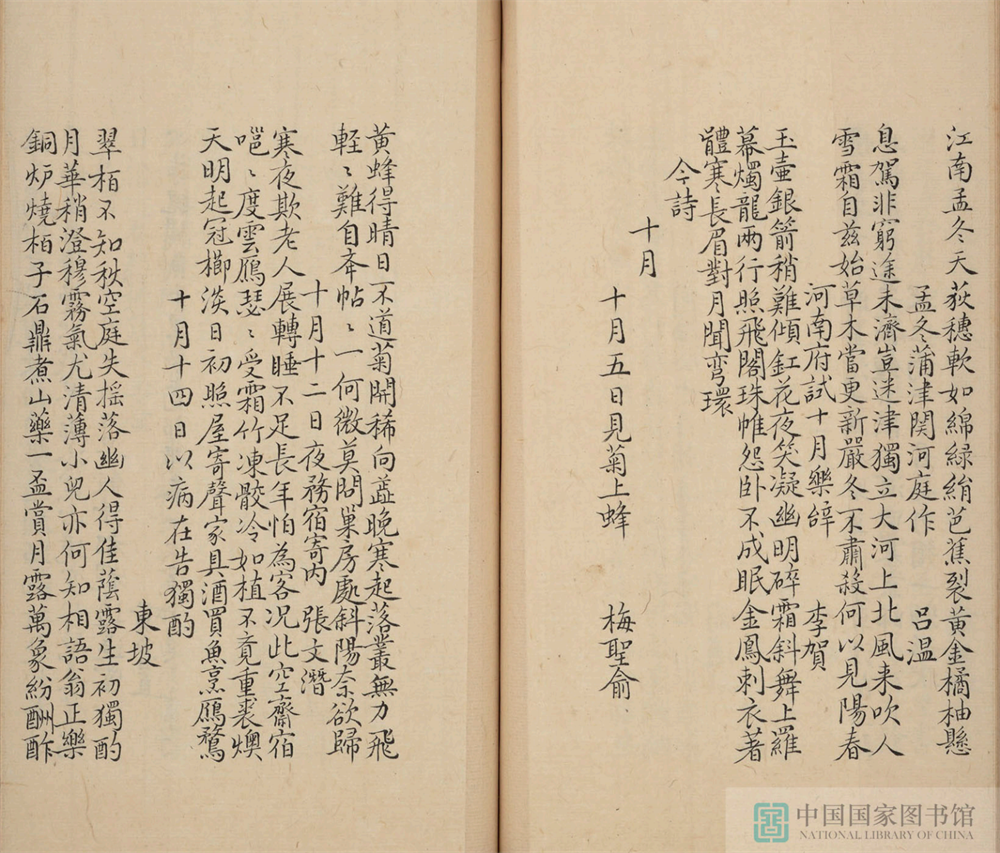 江南孟冬天荻穗軟如綿綠絹芭蕉裂黃金橘柚懸
孟冬蒲津関河庭作 呂溫
息駕非窮途未濟豈迷津獨立大河上北風来吹人
雪霜自茲始草木當更新嚴冬不肅殺何以見陽春
河南府試十月樂辝 李賀
玉壺銀箭稍難傾釭花夜笑凝幽明碎霜斜舞上羅
幕燭龍兩行照飛閣珠帷怨卧不成眠金鳳刺衣著
體寒長眉對月闘弯環
今詩
十月
十月五日見菊上蜂 梅聖俞
黃蜂得晴日不道菊開稀向蘂晚寒起落叢無力飛
軽〻難自夲帖〻一何微莫問巢房處斜陽奈欲歸
十月十二日夜務宿寄內 張文潛
寒夜欺老人展轉睡不足長年怕為客况此空齋宿
嗈〻度雲鴈瑟〻受霜竹凍骹冷如植不竟重裘燠
天明起冠櫛淡日初照屋寄聲家具酒買魚烹鴈鶩
十月十四日以病在告獨酌
東坡
翠栢不知秋空庭失摇落幽人得佳蔭露生初獨酌
月華稍澄穆霧氣尤清薄小兒亦何知相語翁正樂
銅炉燒栢子石鼎煮山藥一盃賞月露萬象紛酬酢
中国国家图书馆
NATIONAL LIBRARY OF CHINA